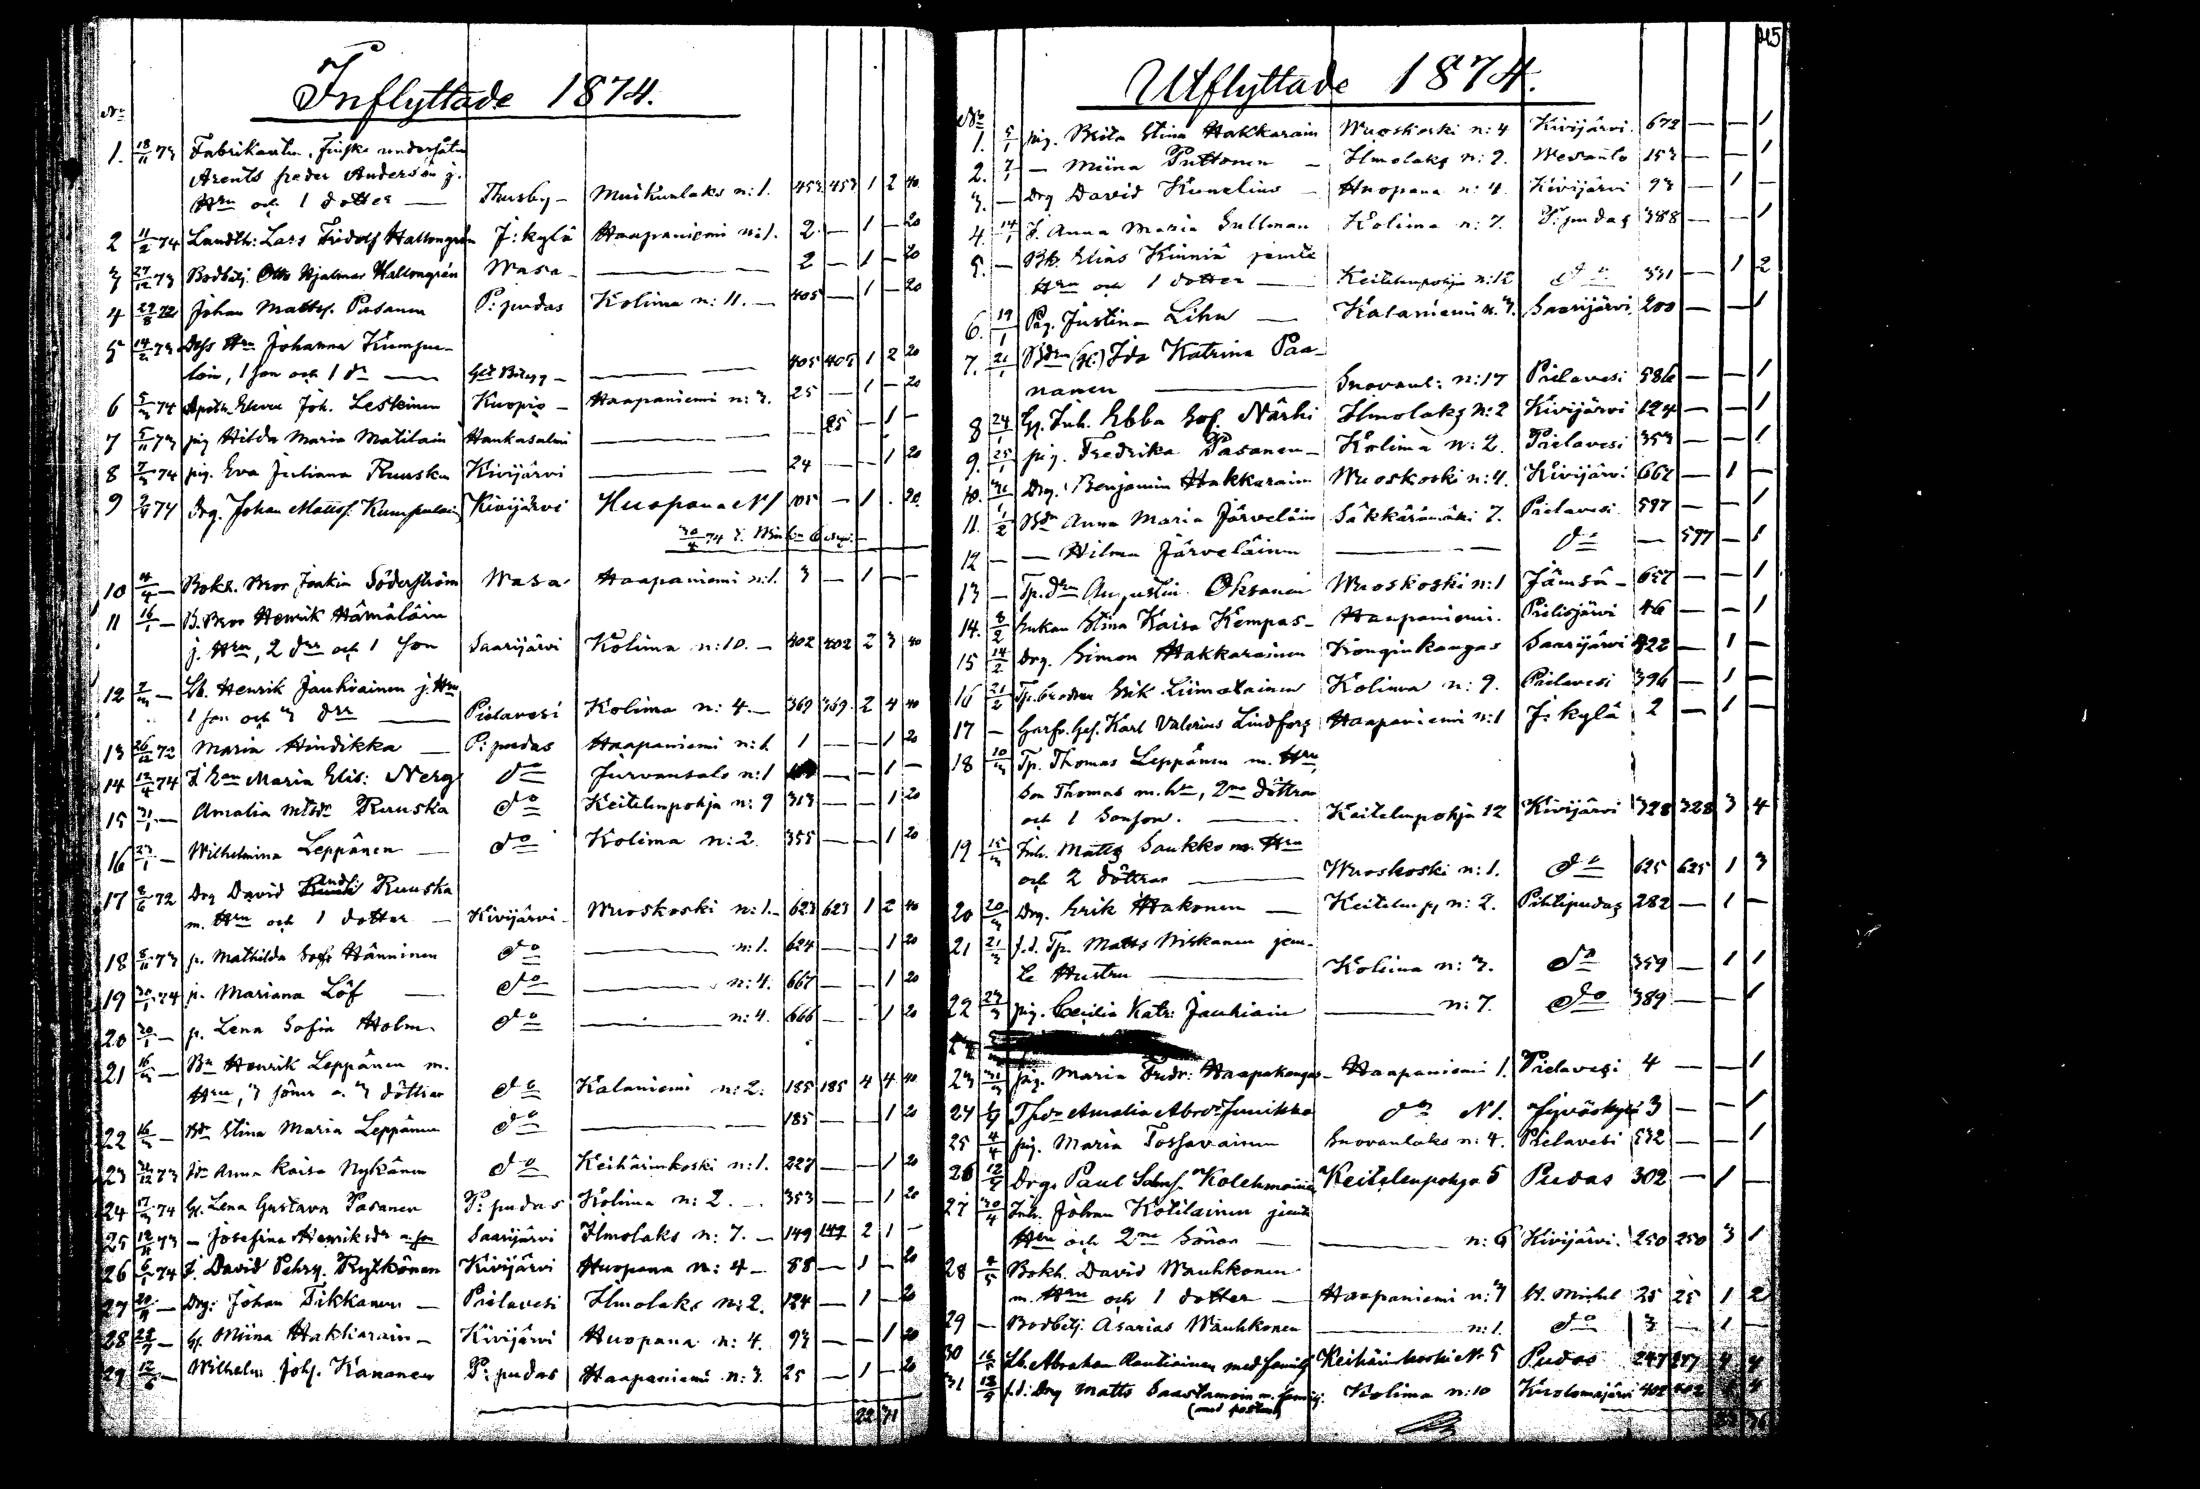 Inflyttade 1874.
No
1. 18/11 73 Fabrikanten, Finske undersåten
Arents Peder Anderson j.
Hru och 1 dotter — Thusby — Muikunlaks n:1. 453 453 1 2 40
2 11/2 74 Landth: Lars Fridolf Hallongren J:kylä Haapaniemi n:1. 2 — 1 — 20
3 27/12 73 Bodbitj. Otto Hjalmar Hallongrén Wasa — — 2 — 1 — 20
4 29/8 72 Johan Mattsf. Pasanen P:pudas Kolima n: 11. — 405 — 1 — 20
5 14/2 73 Dess Hru Johanna Kumpu-
lain, 1 son och 1 dr — — — 405 405 1 2 20
6 5/3 74 Joh. Leskinen Kuopio — Haapaniemi n: 3. 25 — 1 — 20
7 5/11 73 pig Hilda Maria Matilain Hankasalmi — — 25 — 1 —
8 7/3 74 pig. Eva Juliana Ruuska Kivijärvi — — 24 — — 1 20
9 2/4 74 drg. Johan Mattsf. Kumpulain Kivijärvi Huopana N1 105 — 1 . 20
30/4 74
10 4/4 — Bokh. Bror Joakim Söderström Wasa Haapaniemi n:1. 3 — 1 — —
11 16/1 — B. Bror Henrik Hämäläin
j. Hru, 2 drr och 1 son Saarijärvi Kolima n:10. — 402 402 2 3 40
12 7/3 — Lb. Henrik Jauhiainen j. Hru
1 son och 3 drr — Pielavesi Kolima n: 4. — 369 369 2 4 40
13 26/12 72 Maria Hindikka — P:pudas Haapaniemi n:1. 1 — — 1 20
14 12/4 74 Maria Elis: Nerg do Jurvansalo n:1 — — 1 —
15 31/1 — Amalia Mtsdr Ruuska do Keitelenpohja n: 9 313 — — 1 20
16 23/1 — Wilhelmina Leppänen — do Kolima n: 2. 355 — — 1 20
17 2/6 72 Drg David Ruuska
m. Hru och 1 dotter — Kivijärvi — Wuoskoski n:1. — 623 623 1 2 40
18 5/11 73 p. Mathilda Sofi Hänninen do — n:1. 624 — — 1 20
19 30/1 74 p. Mariana Löf — do — n: 4. 667 — — 1 20
20 30/1 — p. Lena Sofia Holm do — n: 4. 666 — — 1 20
21 16/3 — Bn Henrik Leppänen m.
Hru, 3 söner o. 3 döttrar do Kalaniemi n: 2. 185 185 4 4 40
22 16/3 — Bdr Stina Maria Leppänen do — — 185 — — 1 20
23 31/12 73 Anna Kaisa Nykänen do Keihärinkoski n:1. 227 — — 1 20
24 17/3 74 Gl. Lena Gustava Pasanen P:pudas Kolima n: 2. — 353 — — 1 20
25 12/11 73 — Josefina Henriksdr o. son Saarijärvi Ilmolaks n: 7. — 149 149 2 1 —
26 6/1 74 J. David Pehrss. Rytkönen Kivijärvi Huopana n: 4 — 88 — 1 — 20
27 20/4 — Drg: Johan Tikkanen — Pielavesi Ilmolaks n: 2. 124 — 1 — 20
28 24/4 — Gl. Miina Hakkarain — Kivijärvi Huopana n: 4. 93 — — 1 20
29 12/5 — Wilhelm Johs. Kananen P:pudas Haapaniemi n: 3. 25 — 1 — 20
22 31
215
Utflyttade 1874.
No
1. 5/1 pig. Brita Stina Hakkarain Wuoskoski n: 4 Kivijärvi. 672 — — 1
2. 7/1 — Miina Puttonen — Ilmolaks n: 2. Wesanto 153 — — 1
3. — Drg David Kunelius — Huopana n: 4. Kivijärvi 93 — 1 —
4 14/1 Anna Maria Gullman Kolima n: 7. P:pudas 388 — — 1
5. — Bk. Elias Kinniä jemte
Hru och 1 dotter — Keitelenpohja n:12 do 331 — 1 2
6. 19/1 Pig. Justina Lihn — Kalaniemi n. 3. Saarijärvi 200 — — 1
7. 21/1 Ida Katrina Paa-
nanen — Suovanl: n:17 Pielavesi 586 — — 1
8 24/1 Gl. Inh. Ebba Sof. Närhi Ilmolaks n: 2 Kivijärvi 124 — — 1
9. 25/1 pig. Fredrika Pasanen — Kolima n: 2. Pielavesi 353 — — 1
10. 31/1 Drg. Benjamin Hakkarain Wuoskoski n: 4. Kivijärvi 662 — 1 —
11. 1/2 Bdr Anna Maria Järveläin Säkkärämäki 7. Pielavesi 597 — — 1
12 — — Hilma Järveläinen — — do — 597 — 1
13 — Tp. drn Augustin Oksanen Wuoskoski n:1 Jämsä — 657 — — 1
14. 8/2 Enkan Stina Kaisa Kempas — Haapaniemi. Pielisjärvi 46 — — 1
15 14/2 Drg. Simon Hakkarainen Konginkangas Saarijärvi 522 — 1 —
16 21/2 Tp. Erik Liimatainen Kolima n: 9. Pielavesi 396 — 1 —
17 — Garfv. Ges. Karl Valerius Lindfors Haapaniemi n:1 J:kylä 2 — 1 —
18 10/3 Tp. Thomas Leppänen m. Hru,
son Thomas m. h., 2ne döttrar
och 1 sonson. — Keitelenpohja 12 Kivijärvi 328 328 3 4
19 15/3 Inh. Matts Saukko m. Hru
och 2 döttrar — Wuoskoski n:1. do 625 625 1 3
20 20/3 Drg. Erik Hakonen — Keitelenp. n: 2. Pihtipudas 282 — 1 —
21 21/3 f.d. Tp. Matts Niskanen jem-
te Hustru — Kolima n: 3. do 359 — 1 1
22 23/3 pig. Cecilia Katr: Jauhiain — n: 7. do 389 — — 1
23 31/3 pig. Maria Fredr: Haapakangas — Haapaniemi 1. Pielavesi 4 — — 1
24 Amalia Abrdr Junikka do N1. Jyväskyla 3 — — 1
25 4/4 pig. Maria Tossavainen Suovanlaks n: 4. Pielavesi 532 — — 1
26 12/4 Drg. Paul Salms. Kolehmainen Keitelenpohja 5 Pudas 302 — 1 —
27 30/4 Inh. Johan Kotilainen jemte
Hru och 2ne Söner — — n: 6 Kivijärvi. 250 250 3 1
28 2/5 Bokh. David Wauhkonen
m. Hru och 1 dotter — Haapaniemi n: 3 St. Michel 25 25 1 2
29 — Bodbitj. Asarias Wauhkonen — n:1. do 3 — 1 —
30 16/5 Lb. Abraham Rautiainen med familj Keihärinkoski N. 5 Pudas 247 247 4 4
31 12/5 f.d. Drg Matts Saastamoin m. familj. Kolima n:10 Kuolomajärvi 402 402 4